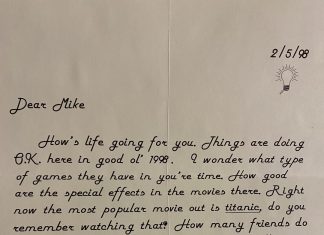 2/5/98
Dear Mike
How's life going for you. Things are doing
O.K. here in good ol' 1998. I wonder what type
of games they have in you're time. How good
are the special effects in the movies there. Right
now the most popular movie out is titanic, do you
remember watching that? How many friends do